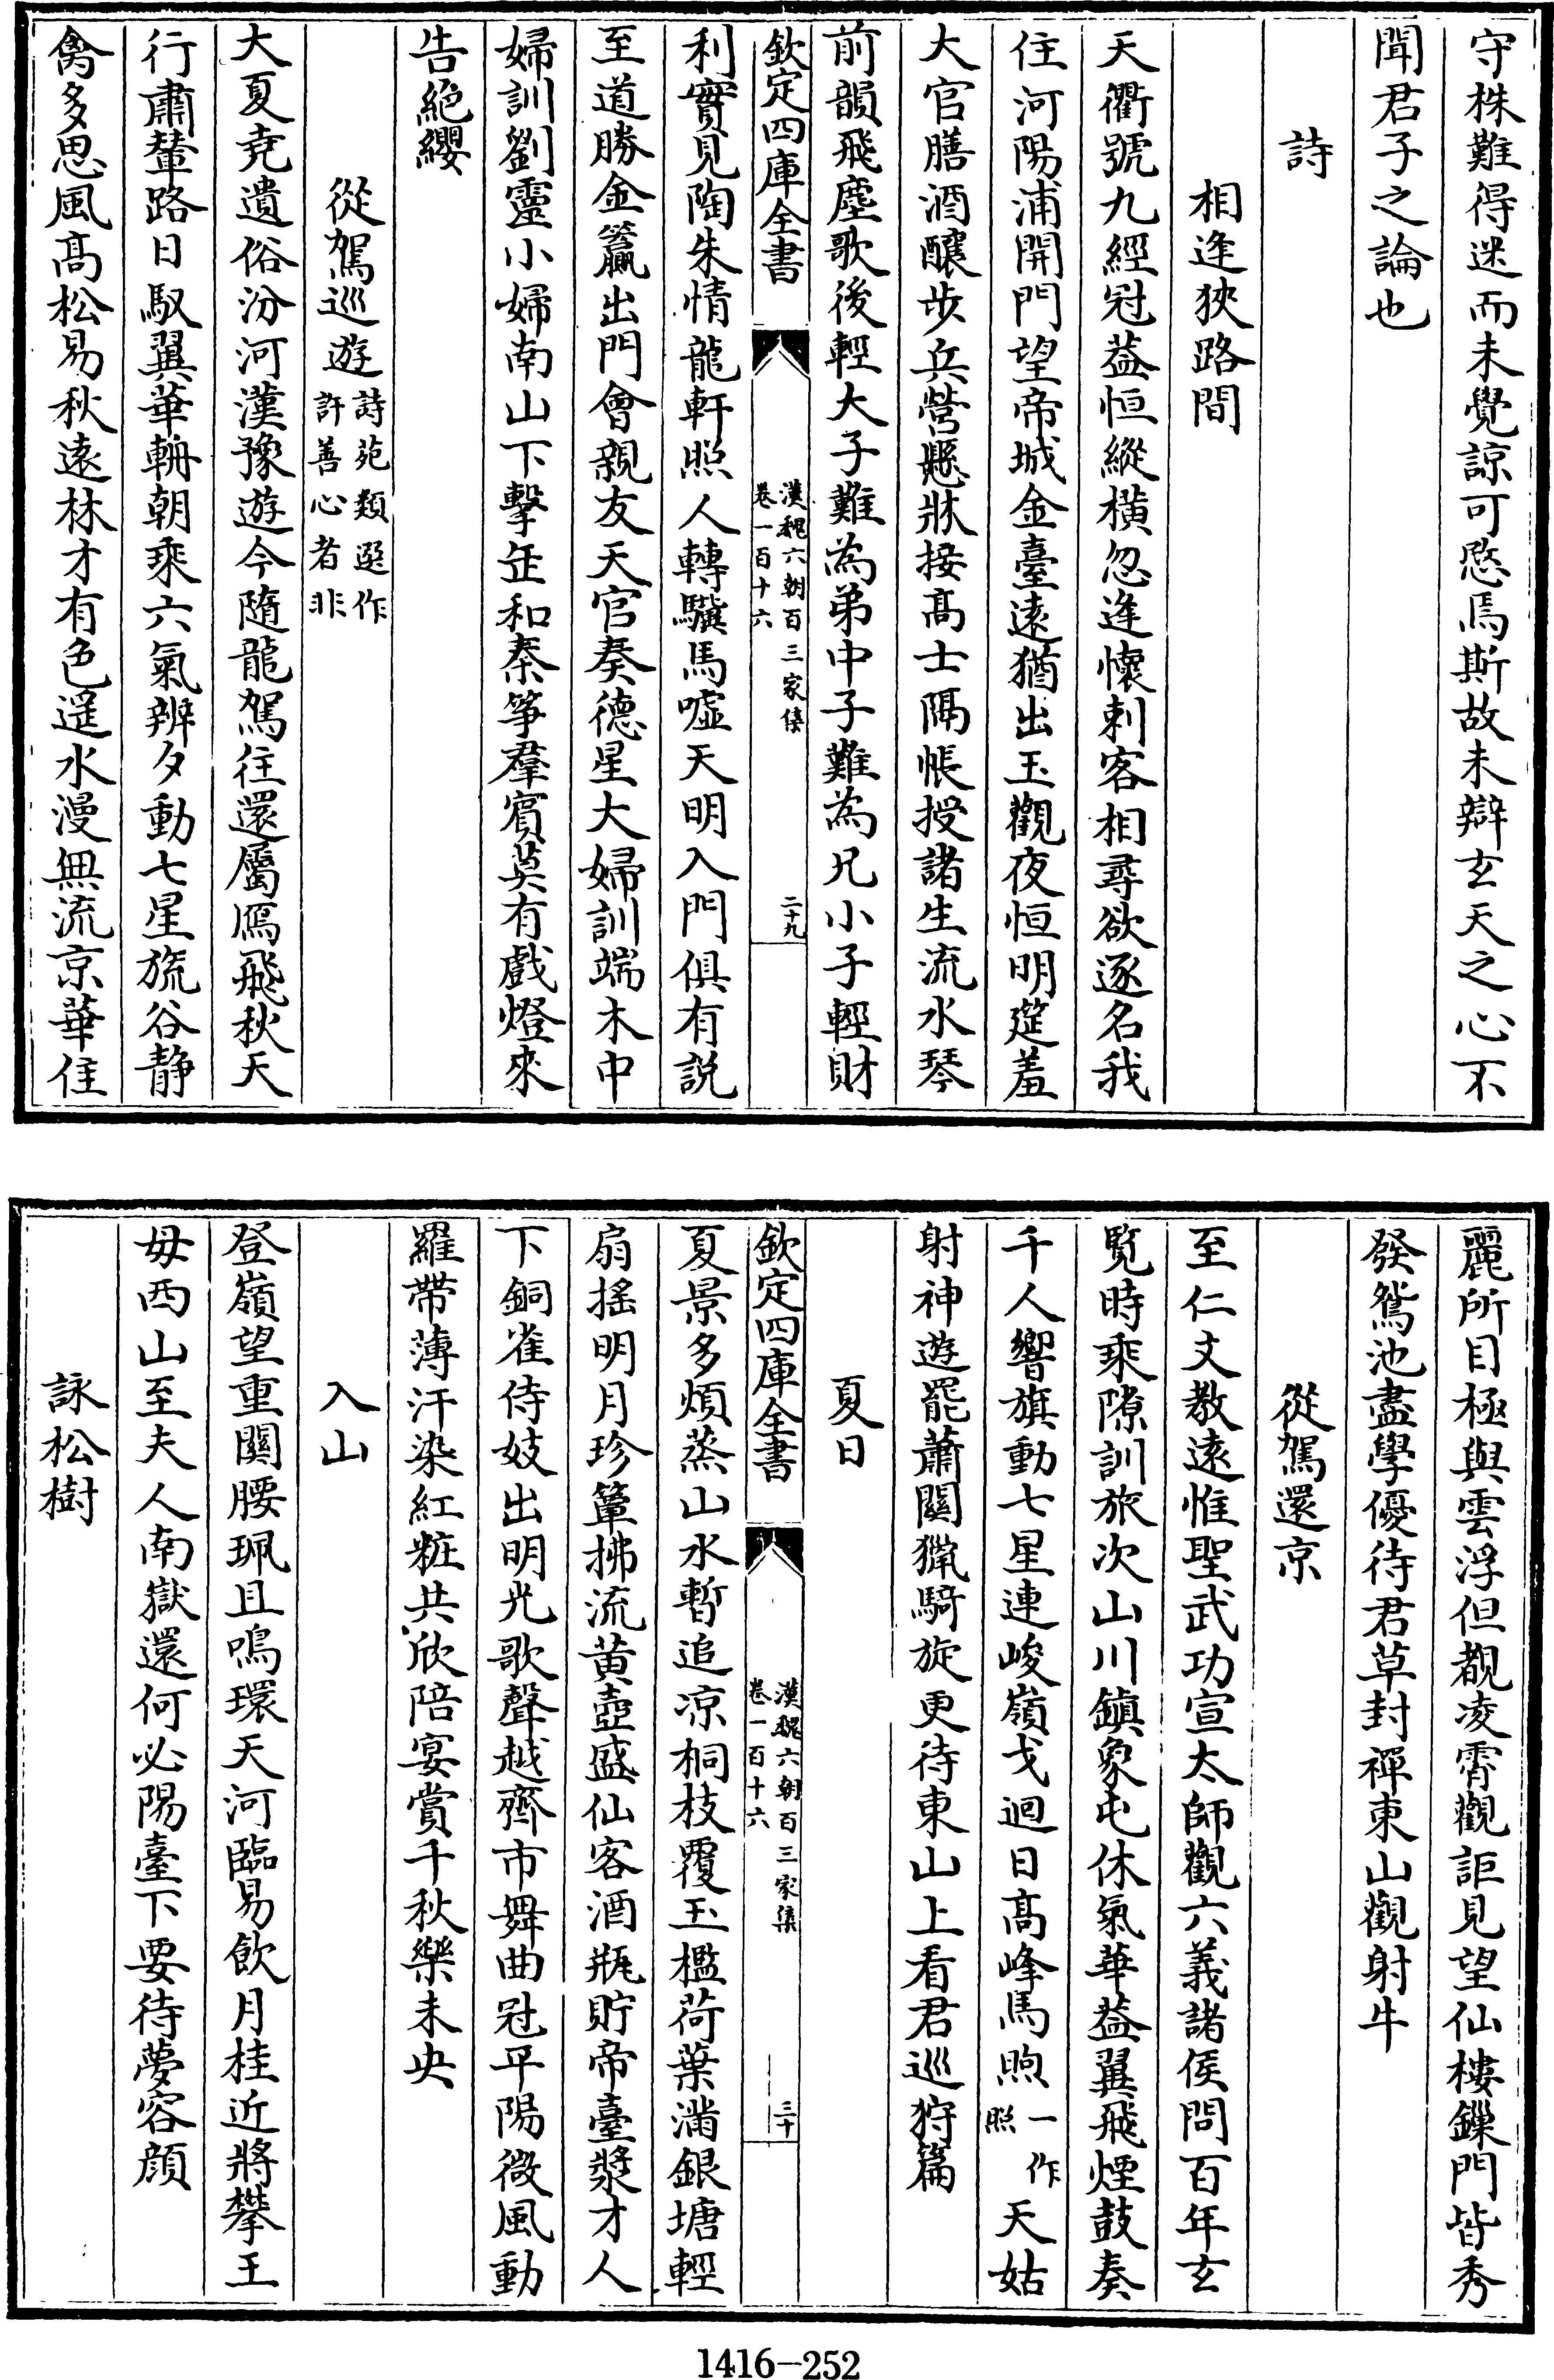 守株難得迷而未覺諒可愍焉斯故未辯玄天之心不
聞君子之論也
詩
相逢狹路間
天衢號九經冠葢恒縱橫忽逢懷刺客相尋欲逐名我
住河陽浦開門望帝城金臺遠猶出玉觀夜恒明筵羞
大官膳酒釀步兵營懸牀接高士隔帳授諸生流水琴
前韻飛塵歌後輕大子難為弟中子難為兄小子輕財
欽定四庫全書
漢魏六朝百三家集
卷一百十六
二十九
利實見陶朱情龍軒照人轉驥馬噓天明入門俱有說
至道勝金籯出門會親友天官奏德星大婦訓端木中
婦訓劉靈小婦南山下擊缶和秦箏羣賓莫有戲燈來
告絕纓
從駕巡遊詩苑類選作
許善心者非
大夏堯遺俗汾河漢豫遊今隨龍駕往還屬鴈飛秋天
行肅輦路日馭翼華輈朝乘六氣辨夕動七星旒谷静
禽多思風高松易秋遠林才有色遥水漫無流京華佳
麗所目極與雲浮但覩凌霄觀詎見望仙樓鏁門皆秀
發鴛池盡學優待君草封禪東山觀射牛
從駕還京
至仁文教遠惟聖武功宣太師觀六義諸侯問百年玄
覽時乘隙訓旅次山川鎮象屯休氣華葢翼飛煙鼓奏
千人響旗動七星連峻嶺戈迴日高峰馬煦一作
照天姑
射神遊罷蕭關獵騎旋更待東山上看君巡狩篇
夏日
欽定四庫全書
漢魏六朝百三家集
卷一百十六
三十
夏景多煩蒸山水暫追凉桐枝覆玉檻荷葉滿銀塘輕
扇搖明月珍簟拂流黄壺盛仙客酒瓶貯帝臺漿才人
下銅雀侍妓出明光歌聲越齊市舞曲冠平陽微風動
羅帶薄汗染紅粧共欣陪宴賞千秋樂未央
入山
登嶺望重關腰珮且鳴環天河臨易飲月桂近將攀王
毋西山至夫人南嶽還何必陽臺下要待夢容顔
詠松樹
1416-252